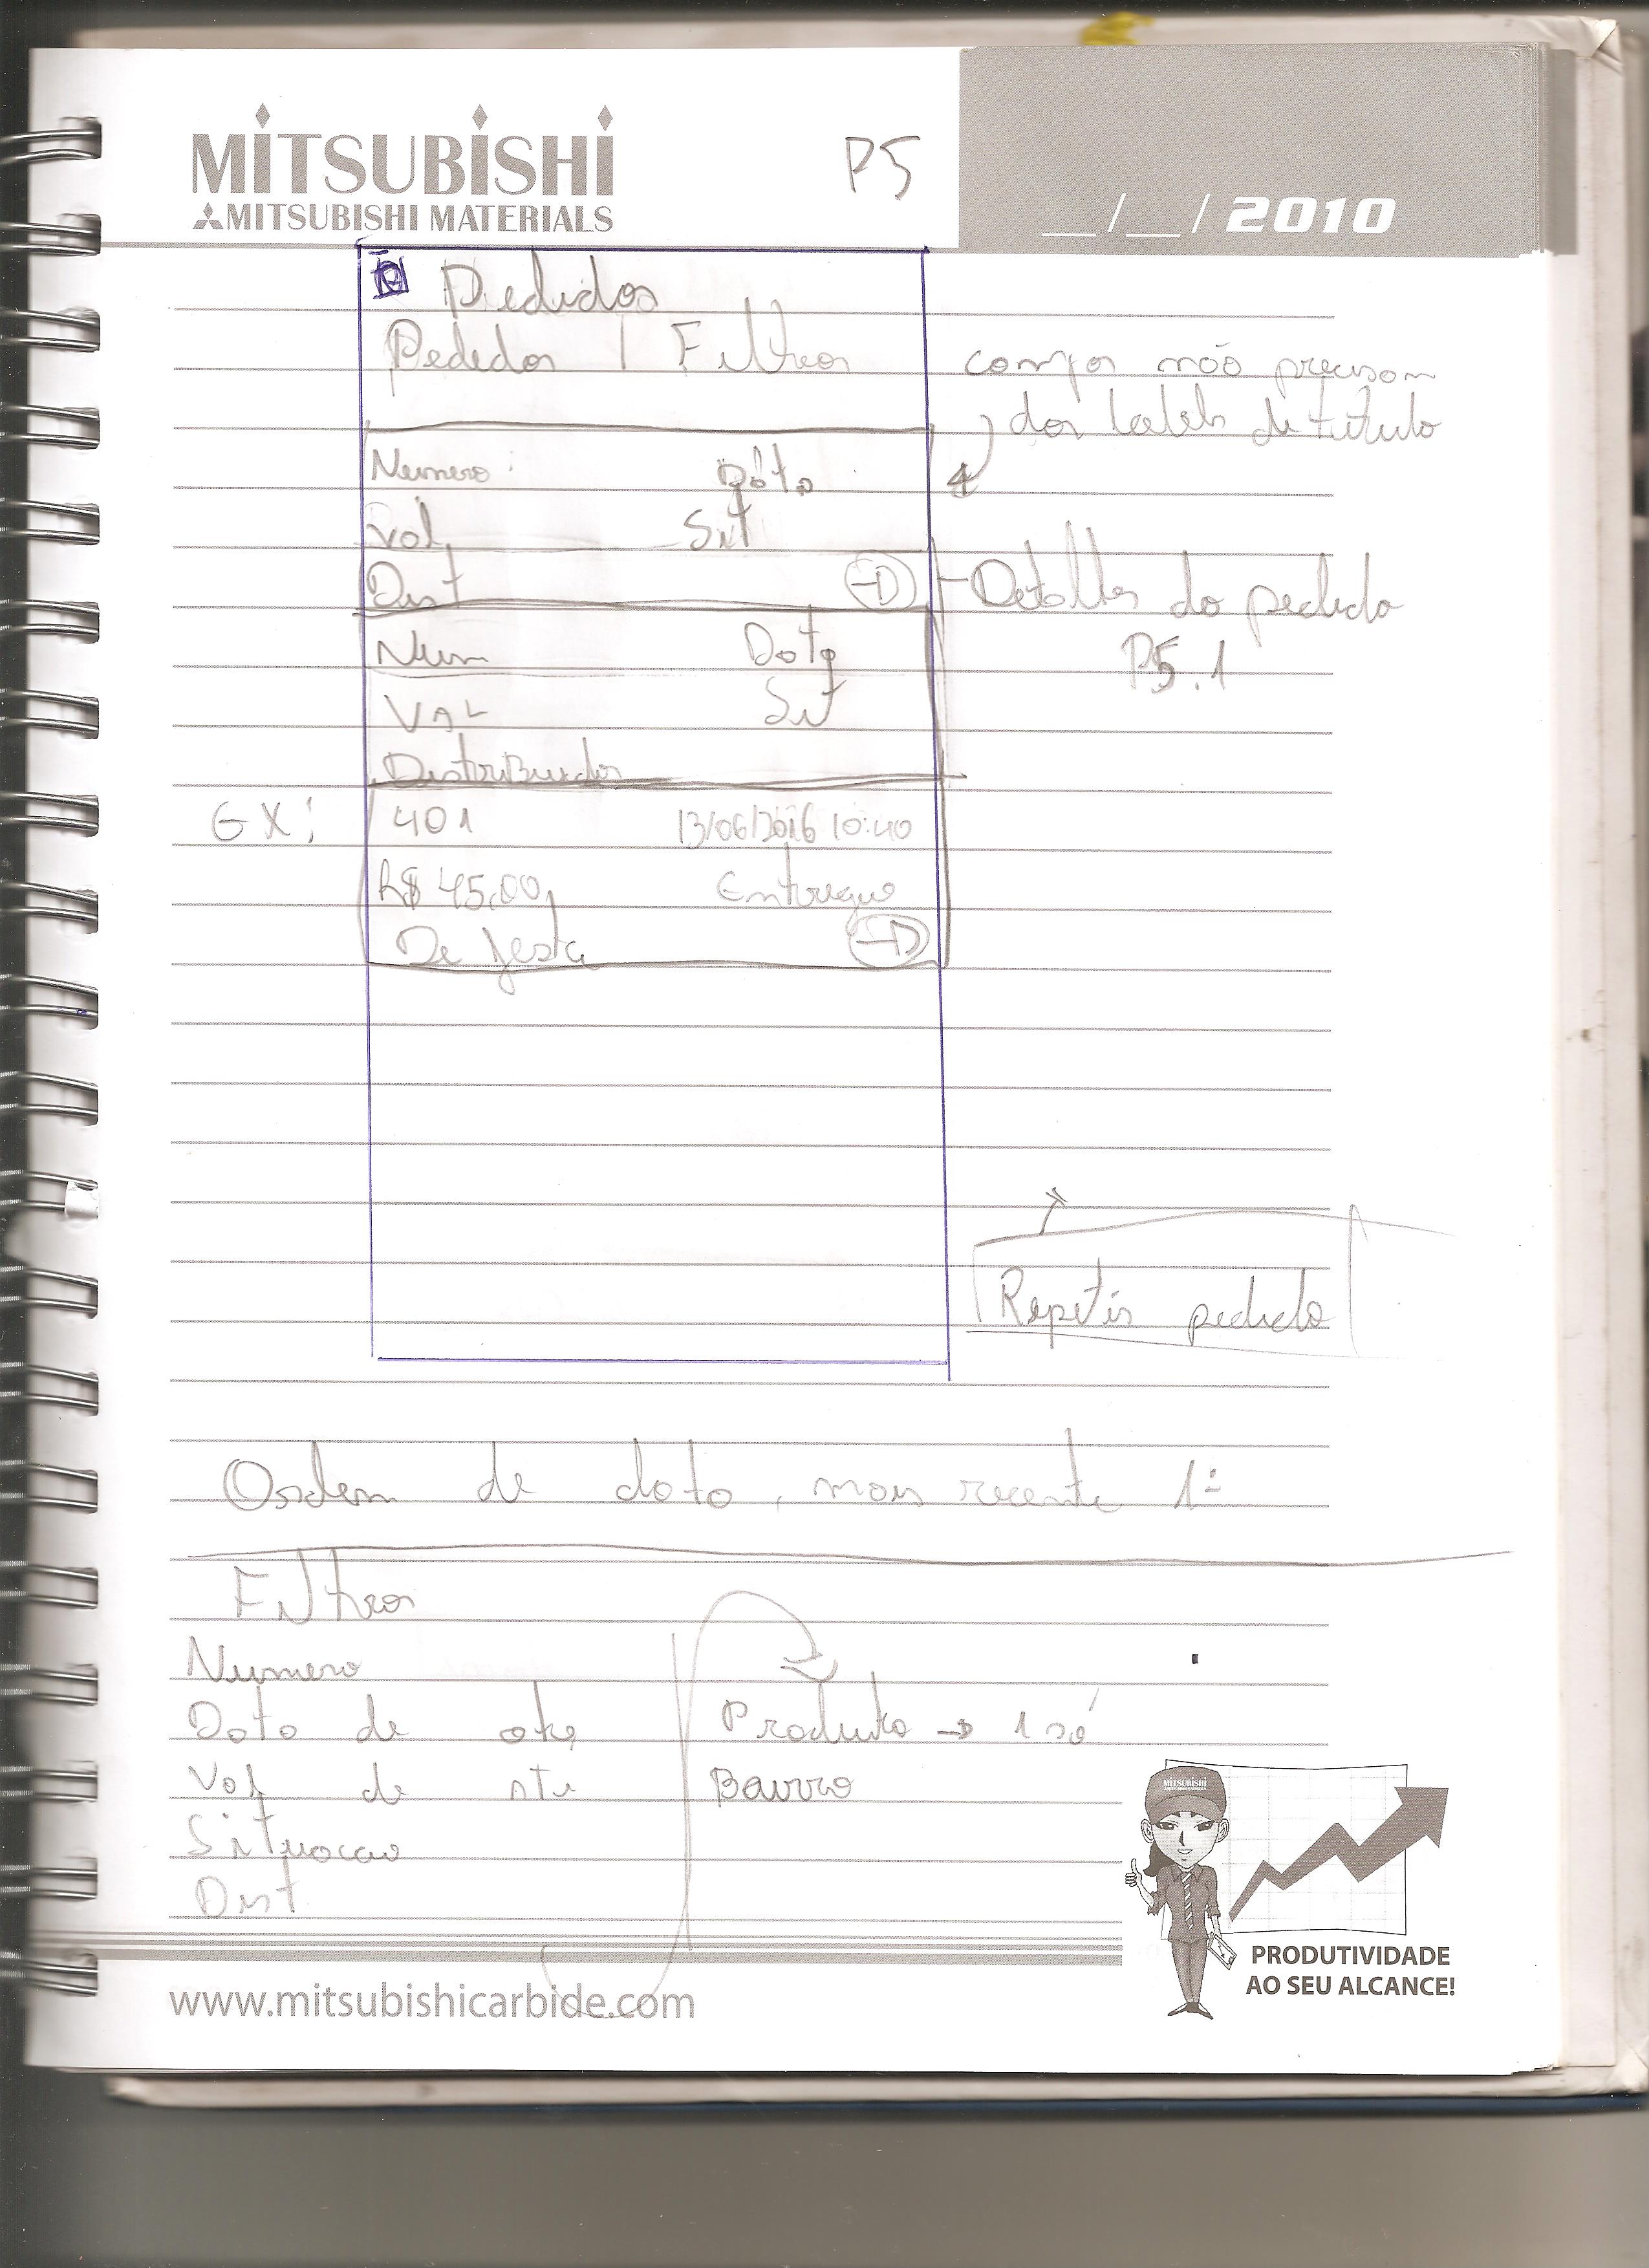 MITSUBISHI
MITSUBISHI MATERIALS
P5
__/__/2010
Pedidos
Pedidos | Filtros
campos não precisam
dos labels de titulo
Numero: Data
Val Sit
Dist -D
Detalhes do pedido
P5.1
Num Data
VAL Sit
Distribuidor
EX: 401 13/06/2016 10:40
R$ 45,00 Entregue
De festa -D
Repetir pedido
Ordem de data, mais recente 1º
Filtros
Numero
Data de ate Produto → 1 só
Val de ate Bairro
Situacao
Dist
MITSUBISHI
PRODUTIVIDADE
AO SEU ALCANCE!
www.mitsubishicarbide.com